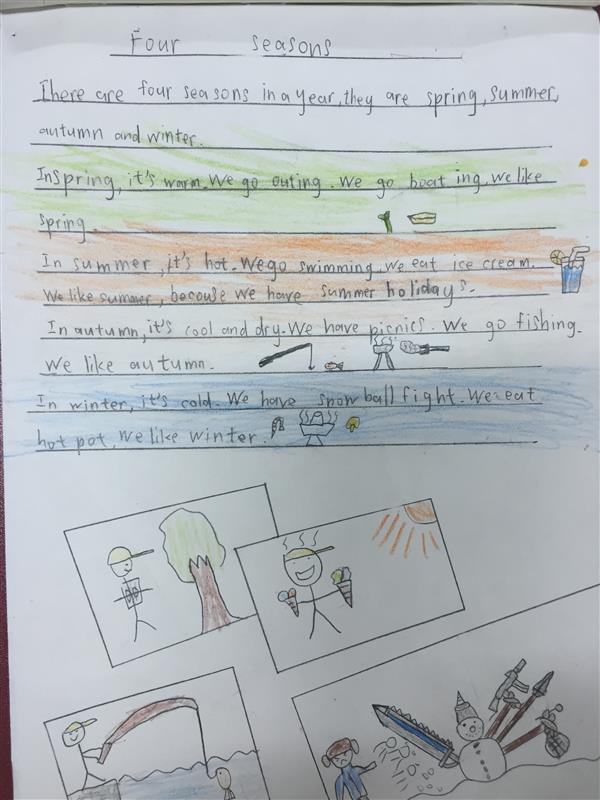 Four seasons
There are four seasons in a year, they are spring, summer,
autumn and winter.
In spring, it's warm. We go outing. We go boating, we like
spring.
In summer, it's hot. We go swimming. we eat ice cream.
We like summer, becouse we have summer holidays.
In autumn, it's cool and dry. We have picnics. We go fishing.
We like autumn.
In winter, it's cold. We have snow ball fight. We eat
hot pot, We like winter.